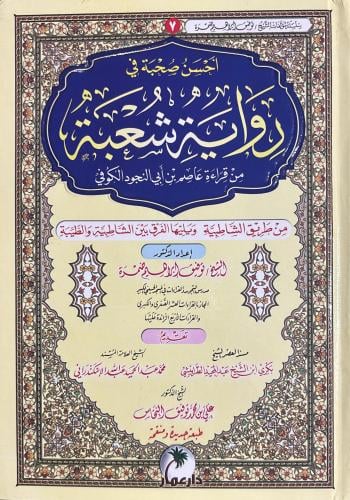 ٧
أحسن صحبة في
رواية شعبة
من قراءة عاصم بن أبي النجود الكوفي
من طريق الشاطبية ويليها الفرق بين الشاطبية والطيبة
إعداد الدكتور
الشيخ / توفيق إبراهيم ضمرة
والقراءات الأربع الزائدة عليها
تقديم
مسند العصر الشيخ
بكري ابن الشيخ عبد المجيد الطرابيشي
الشيخ العلامة المسند
محمد عبد الحميد عبد الله الإسكندراني
الشيخ الدكتور
علي بن محمد توفيق النحاس
طبعة جديدة ومنقحة
دار عمار